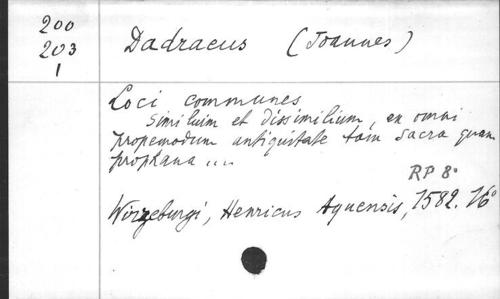 200
203
1
Dadraeus (Joannes)
Loci communes
Similium et dissimilium, ex omni
propemodum antiquitate tam sacra quam
prophana ....
RP 8°
Wirzeburgi, Henricus Aquensis, 1582. 16°